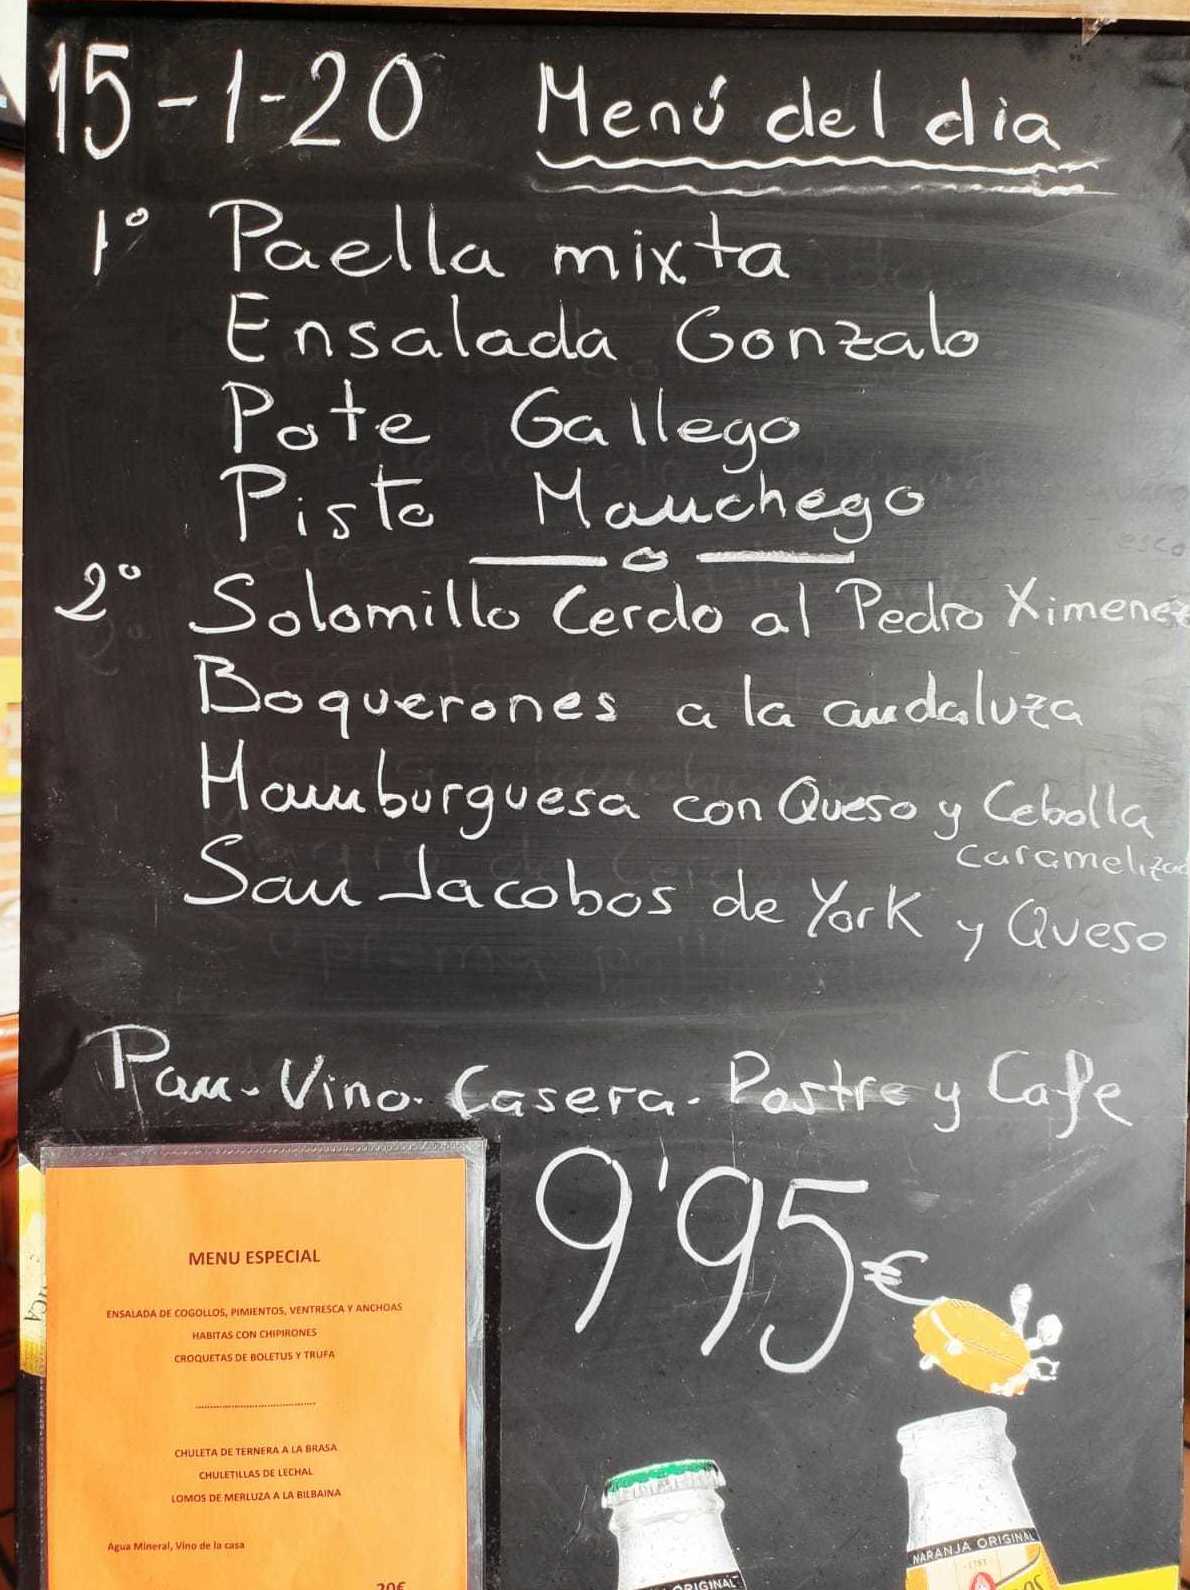 15-1-20 Menú del dia
1º Paella mixta
Ensalada Gonzalo
Pote Gallego
Pisto Manchego
2º Solomillo Cerdo al Pedro Ximenez
Boquerones a la andaluza
Hamburguesa con Queso y Cebolla
caramelizad
San Jacobos de York y Queso
Pan. Vino. Casera. Postre y Cafe
9'95€
MENU ESPECIAL
ENSALADA DE COGOLLOS, PIMIENTOS, VENTRESCA Y ANCHOAS
HABITAS CON CHIPIRONES
CROQUETAS DE BOLETUS Y TRUFA
CHULETA DE TERNERA A LA BRASA
CHULETILLAS DE LECHAL
LOMOS DE MERLUZA A LA BILBAINA
Agua Mineral, Vino de la casa
20€
NARANJA ORIGINAL
1783
ORIGINAL